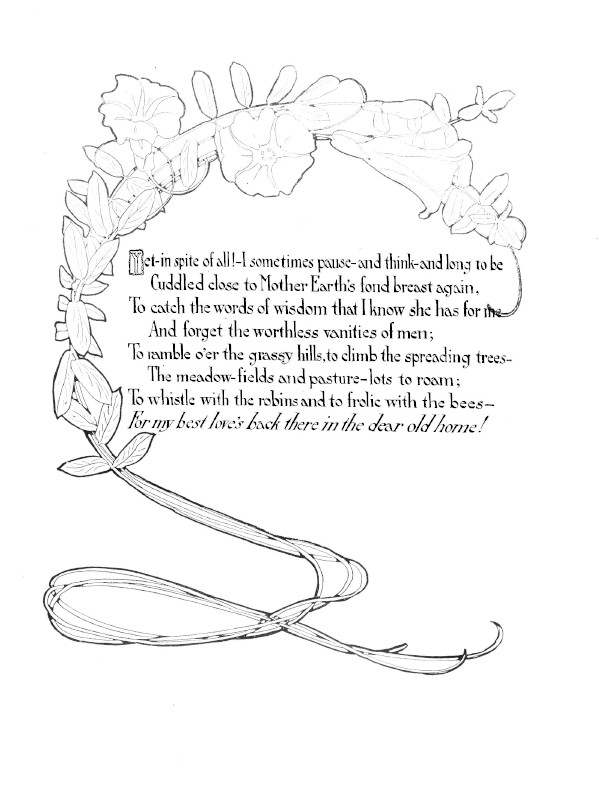 Yet-in spite of all!-I sometimes pause-and think-and long to be
Cuddled close to Mother Earth's fond breast again,
To catch the words of wisdom that I know she has for me
And forget the worthless vanities of men;
To ramble o'er the grassy hills, to climb the spreading trees-
The meadow-fields and pasture-lots to roam;
To whistle with the robins and to frolic with the bees-
For my best love's back there in the dear old home!